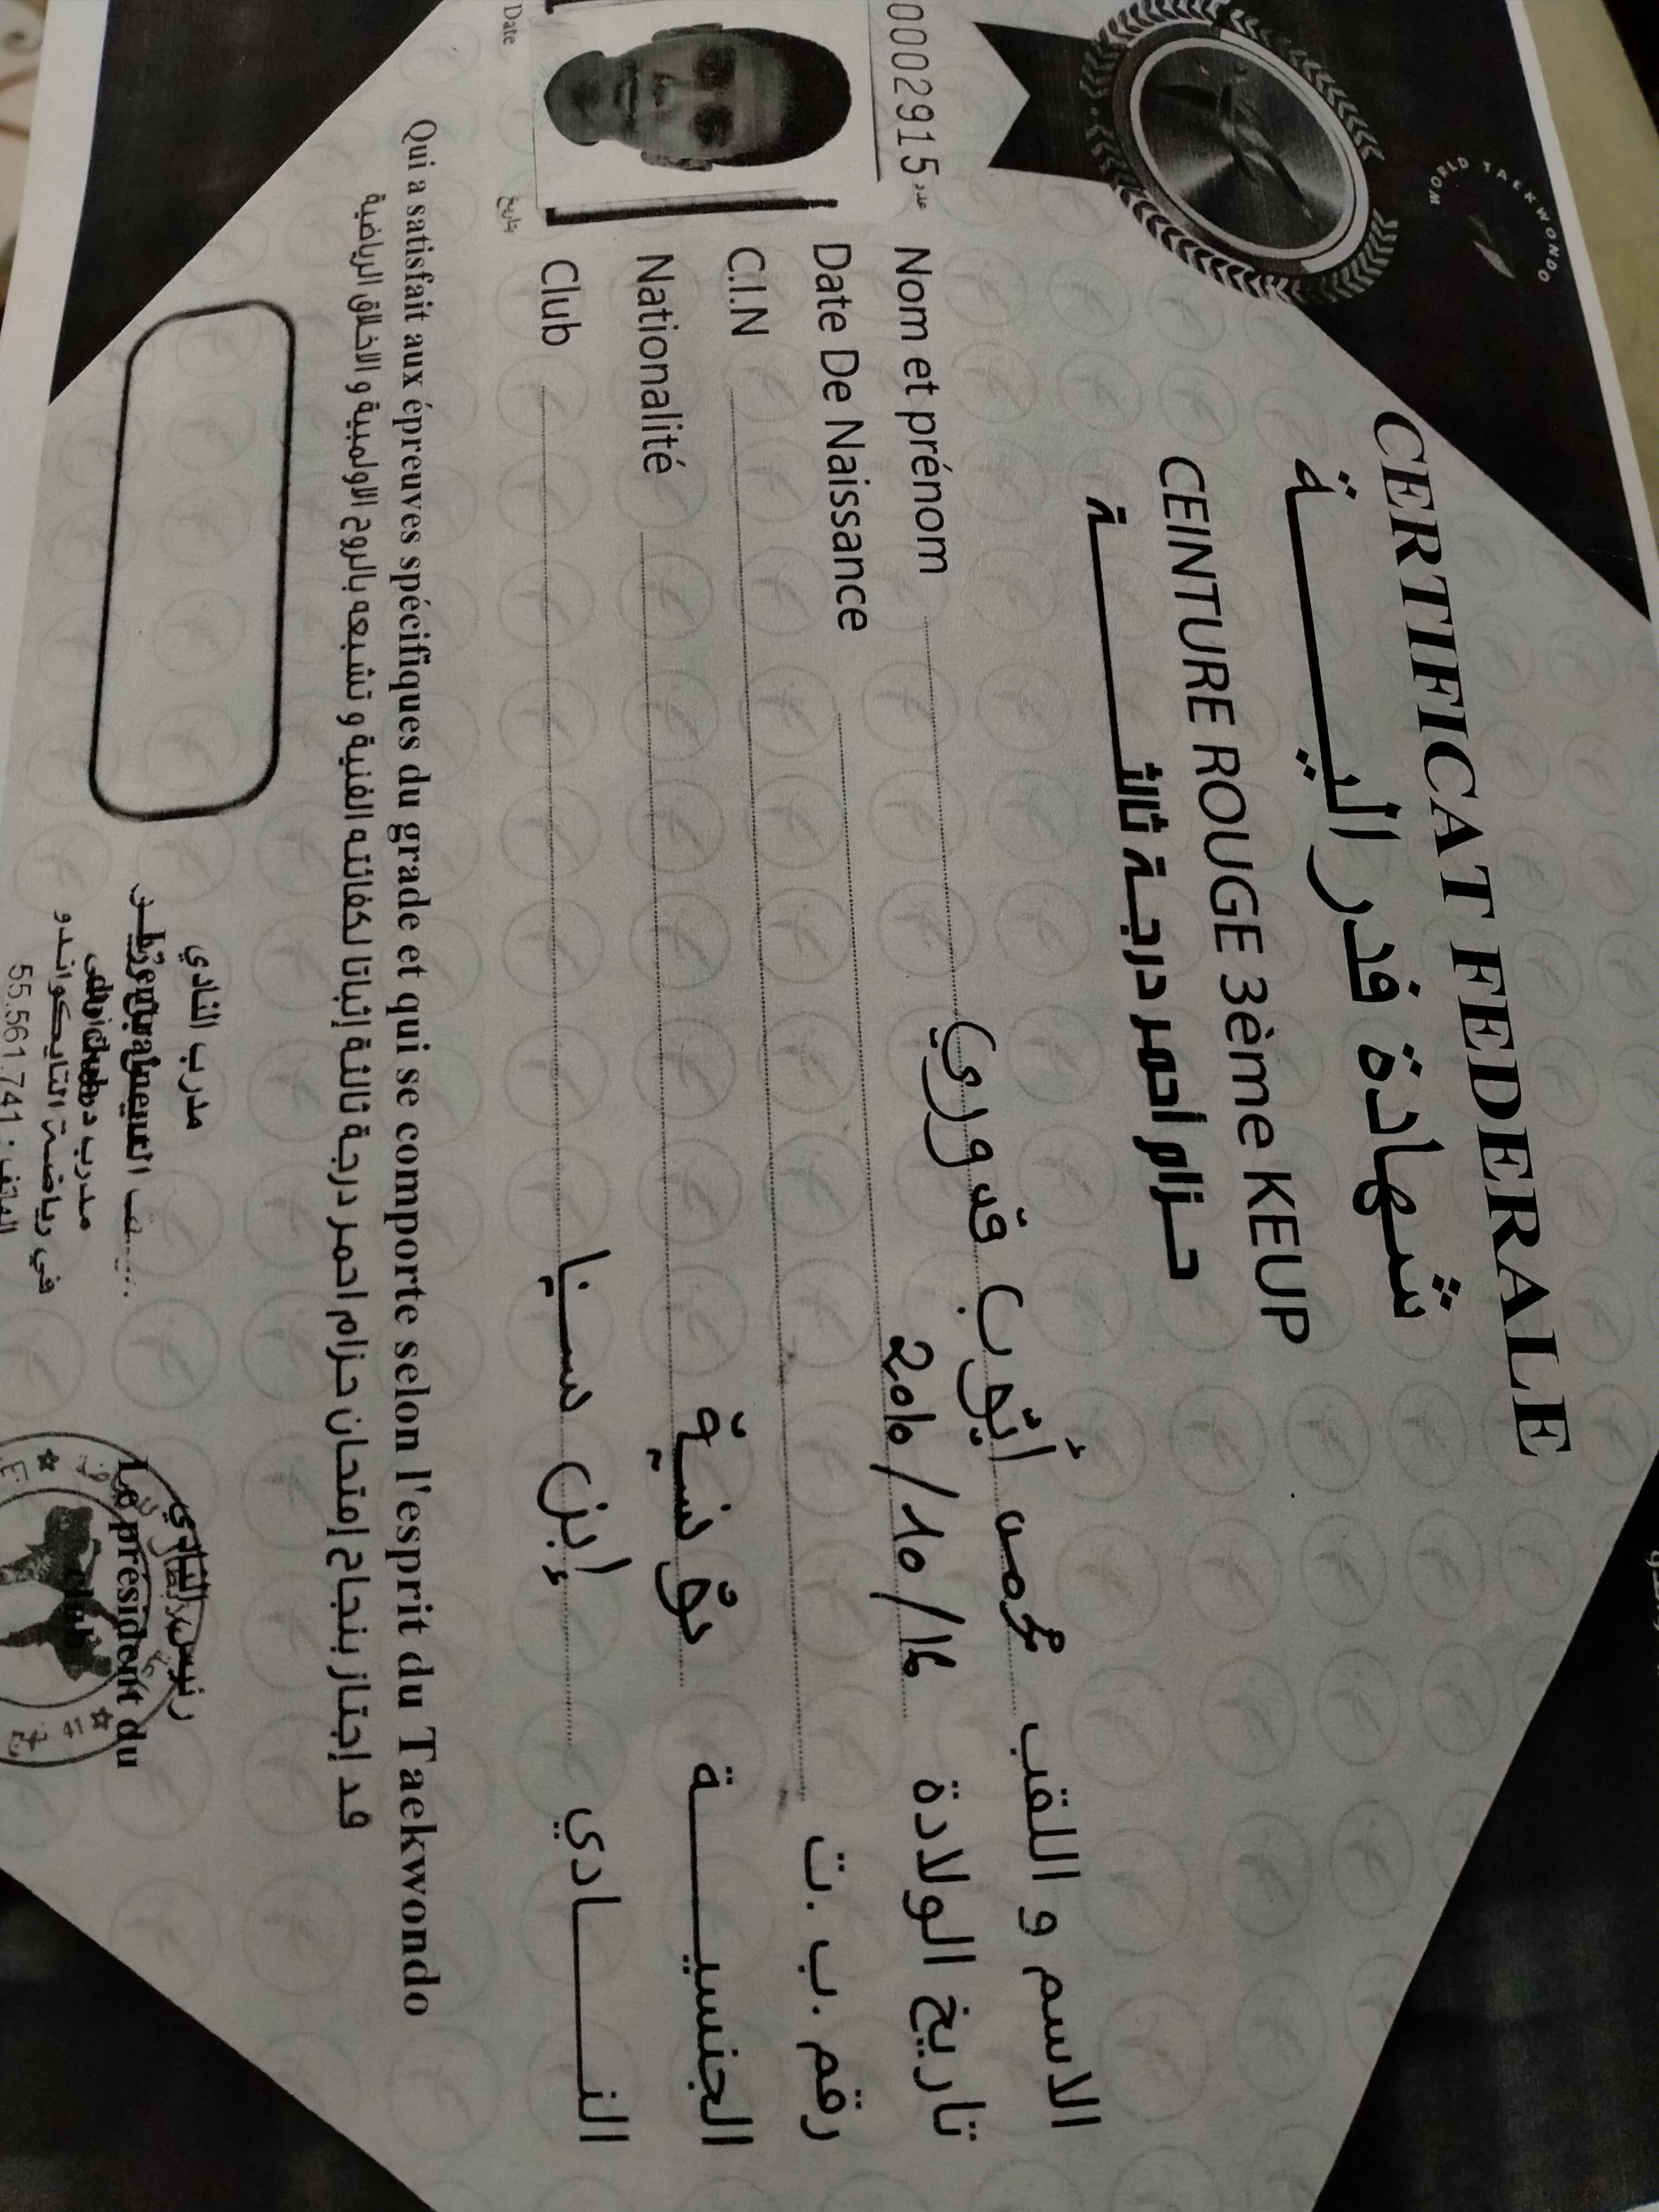 WORLD TAEKWONDO
CERTIFICAT FEDERALE
شهادة فدراليــــــــة
CEINTURE ROUGE 3ème KEUP
حزام أحمر درجة ثالثــــــــة
00002915 عدد
Nom et prénom محمد أيّوب قدوري الاسم و اللقب
Date De Naissance 2010/10/16 تاريخ الولادة
C.I.N رقم .ب .ت
Nationalité تونسية الجنسيــــــة
Club إبن سينا النــــــادي
Date تاريخ
Qui a satisfait aux épreuves spécifiques du grade et qui se comporte selon l'esprit du Taekwondo
قد إجتاز بنجاح إمتحان حزام احمر درجة ثالثة إثباتا لكفائته الفنية و تشبعه بالروح الاولمبية و الاخلاق الرياضية
مدرب النادي
رئيس النادي
Le président du
club
مدرب
في رياضة التايكواندو
الهاتف : 55.561.741